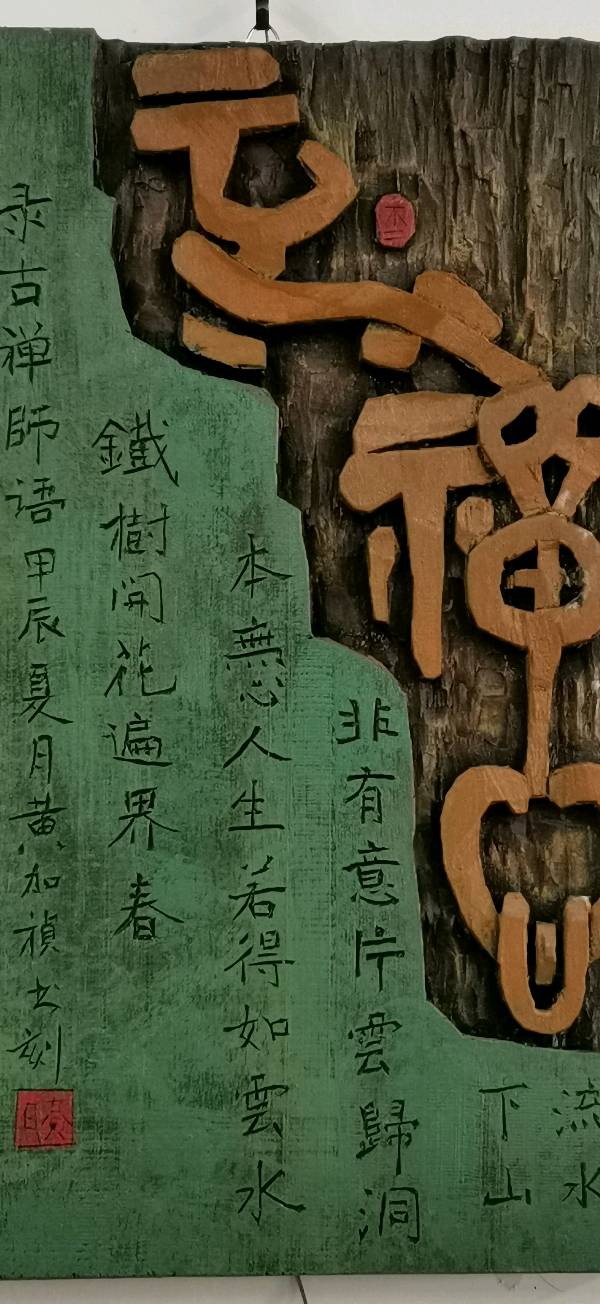 云禪
流水
下山
非有意片雲歸洞
本無心人生若得如雲水
鐵樹開花遍界春
录古禅師语甲辰夏月黄加禎书刻